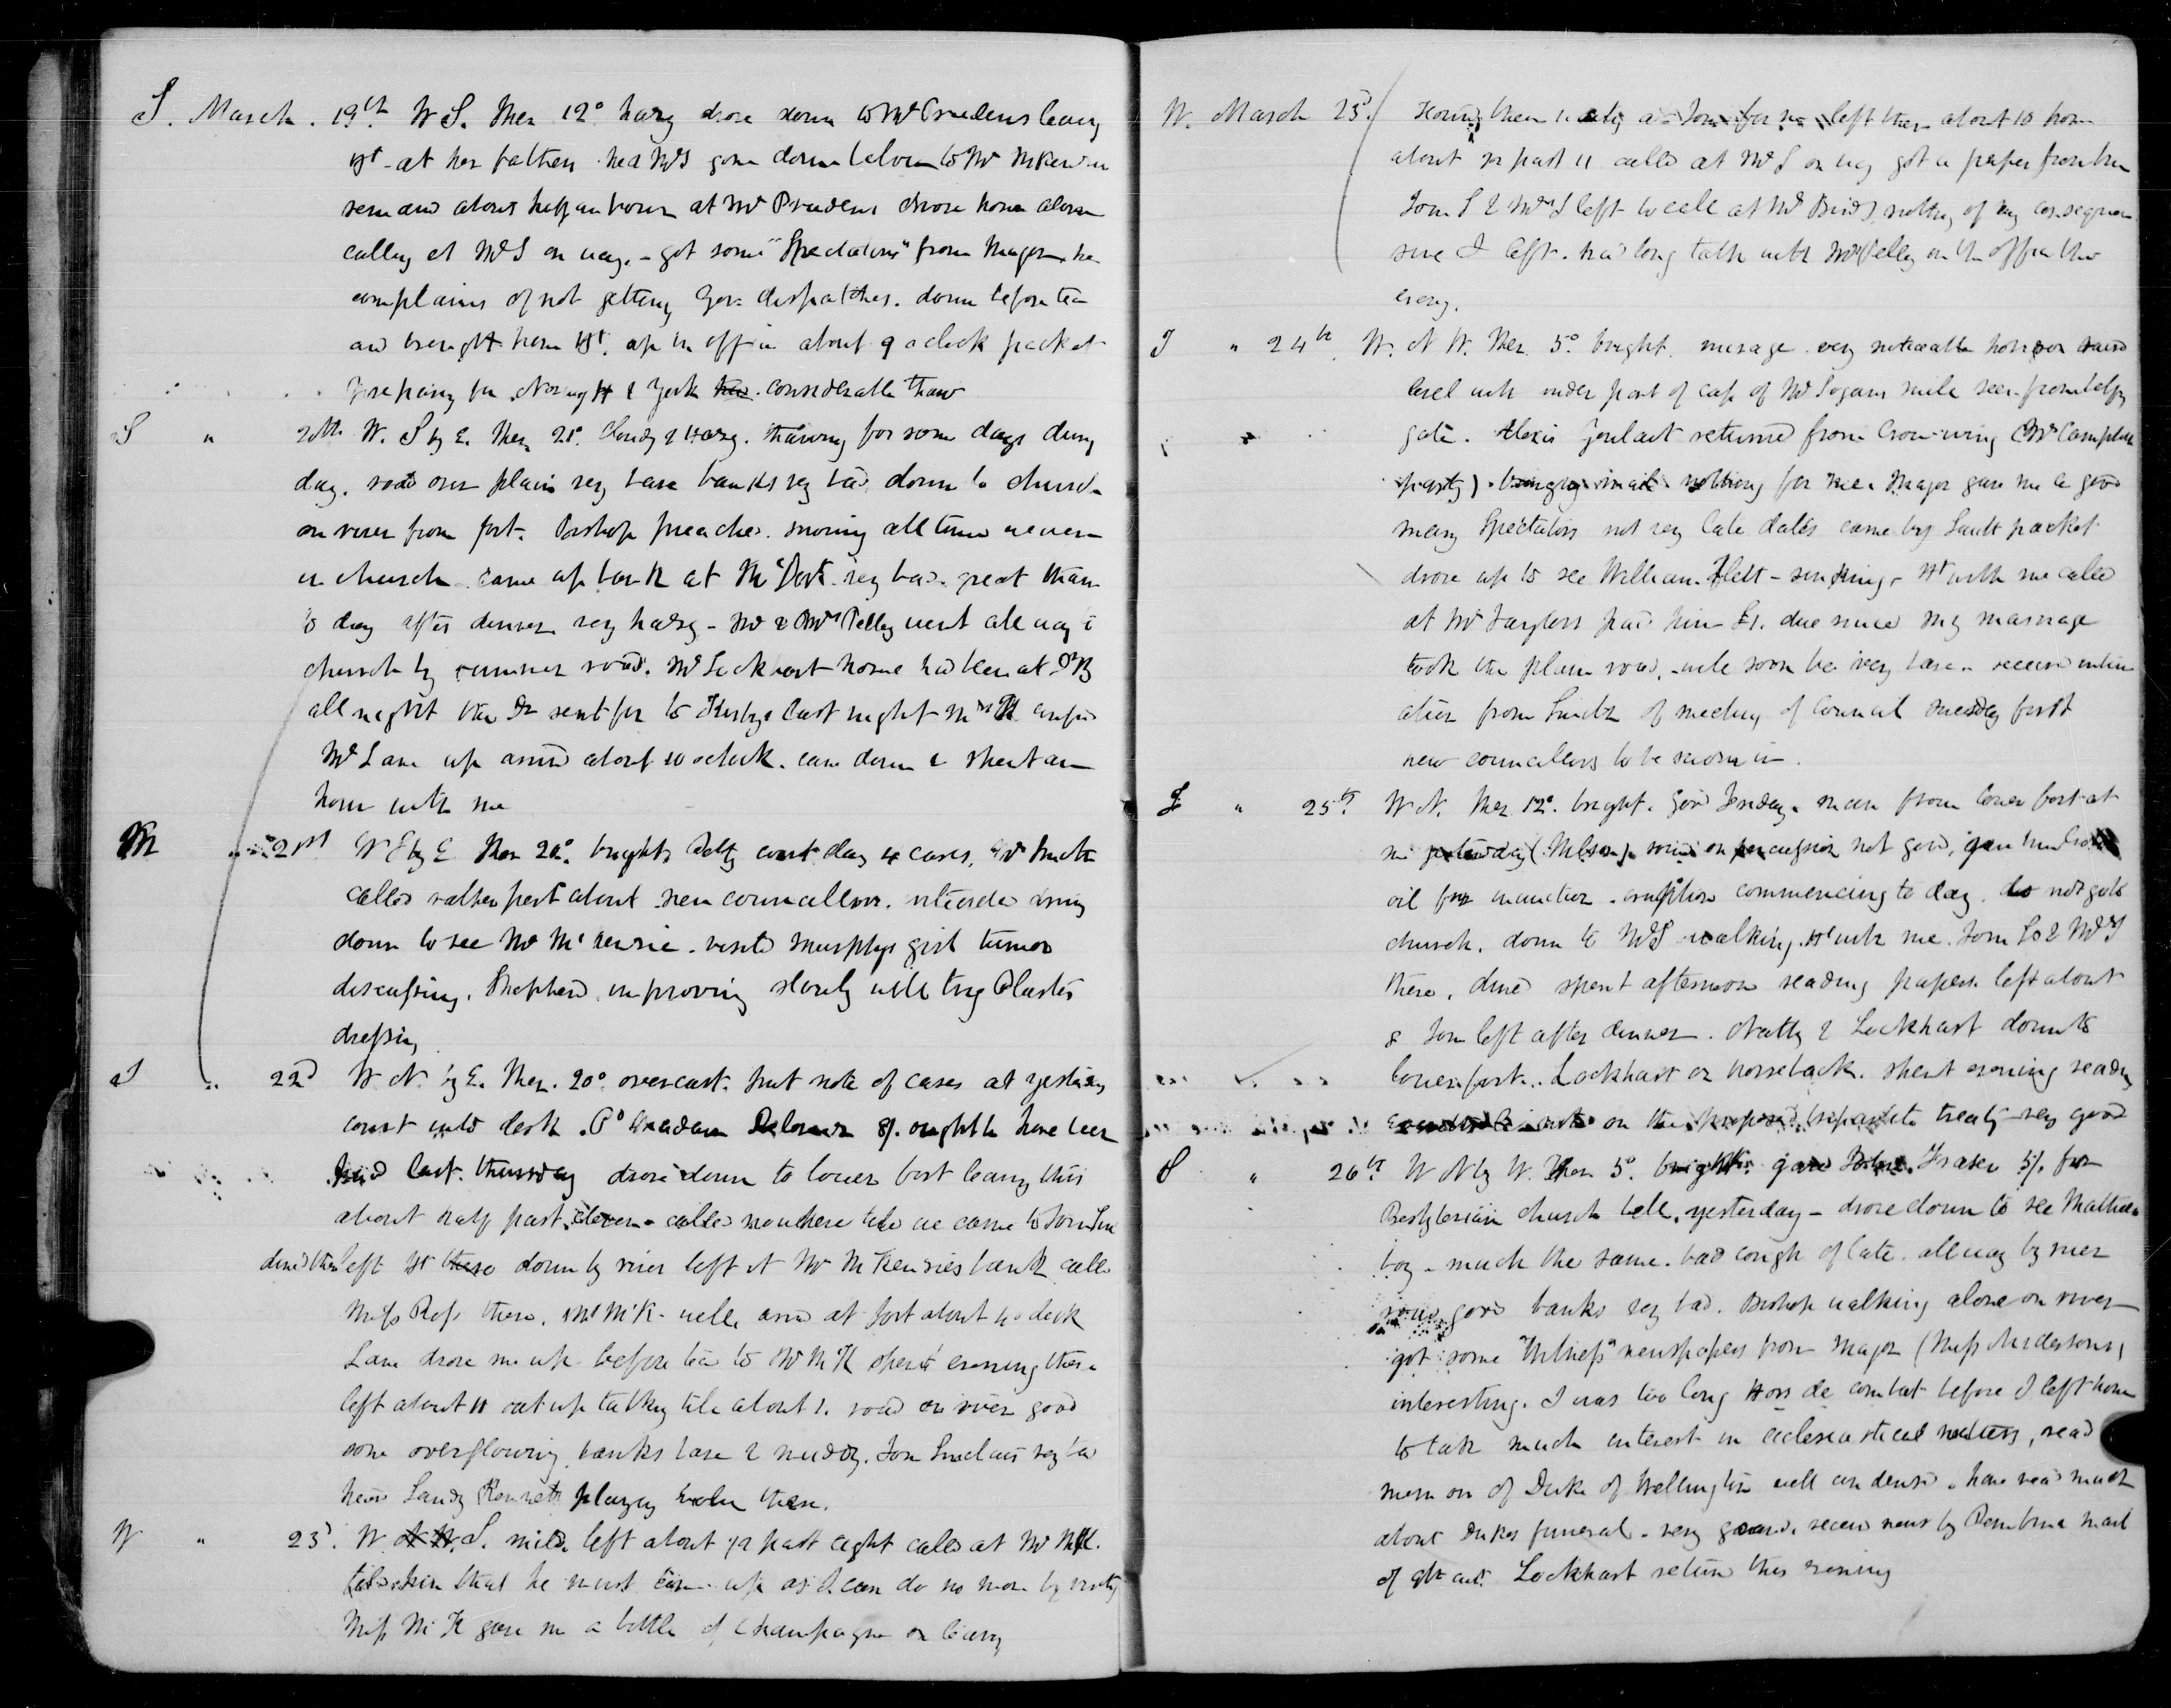 S. March. 19th W S. Ther 12° hazy drove down to Mr Prudens leaving
Ht at her fathers had McS gone down below to Mr McKenzie
remained about half an hour at Mr Prudens drove home alone
calling at McS on way. - got some "Spectators" from Major he
complains of not getting Gov. dispatches. down before tea
and brought home Ht. up in office about 9 oclock packet
preparing for Norway H & York considerable thaw
S " 20th W. S by E. Ther 28°. Cloudy & Hazy. thawing for some days during
day. road over plain very bare banks very bad down to church
on river from fort. Bishop preached. snowing all time we were
in church came up bank at Mc Derts very bad. great thaw
to day after dinner very hazy - Mr & Mrs Pelly went all way to
church by summer road. Mr Lockhart home had been at DrB
all night the Dr sent for to Kirbys last night Mrs K
Mr Lane up arrived about 10 oclock. came down & spent an
hour with me
M " 21st W S by E Ther 20°. bright Petty court day 4 cases. Mr Smith
called rather past about new councillors. intended going
down to see Mr McKenzie. visited Murphys girl tumor
discussing. Shepherd improving slowly will try Plaster
dressing
T " 22d W N. by E. Ther. 20° overcast. put note of cases at yesterdays
court into desk. Pd Madam Delorme 8/. ought to have been
paid last thursday drove down to lower fort leaving this
about half past eleven - called nowhere till we came to Tom Sin
dined there left Ht there down by river left at Mr McKenzies bank called
Miss Ross there. Mr McK. well. arrd at fort about 4 oclock
Lane drove me up before tea to Mr McK spent evening there
left about 11 sat up talking till about 1. road on river good
some overflowing. banks bare & muddy. Tom Sinclairs very bad
heard Sandy Kennett playing there.
W " 23d. W. S. mild. left about 1/2 past eight called at Mr McK.
told him that he must come up as I can do no more by visiting
Miss McK gave me a bottle of Champagne on leaving
W. March 23d. left them about 10 home
about 1/2 past 11 called at McS on way got a paper from him
Tom S & Mrs S left to call at Mr Birds nothing of any consequence
since I left. had long talk with Mr Pelly in the office this
eveng.
T " 24th W. N W. Ther 5°. bright. mirage very noticeable horizon
level with under part of cap of Mr Logans mill seen from belfry
gate. Alexis Goulait returned from Crow-wing (Mr Campbell
party). bringing mail nothing for me. Major gave me a good
many Spectators not very late dates came by Sault packet
drove up to see William Flett - sinking - Ht with me called
at Mr Taylors paid him £1. due since my marriage
took the plain road, - will soon be very bare. received intim
ation from Smith of meeting of Council tuesday first
new councillors to be sworn in.
F " 25th W N. Ther 12°. bright. Good Friday. man from lower fort at
me yesterday (Nelson). sound on percussion not good, gave him
oil for inunction. eruption commencing to day. do not go to
church. down to McS walking. Ht with me. Tom Ss & Mrs S
there, dined spent afternoon reading papers left about
8 Tom left after dinner. Natty & Lockhart down to
lower fort.. Lockhart on horseback. spent evening reading
on the proposed tripartite treaty very good
S " 26th W N by W. Ther 5°. bright. gave John Fraser 5/. for
Presbyterian church bell, yesterday - drove down to see Matheson
boy - much the same. bad cough of late. all way by river
road good banks very bad. Bishop walking alone on river
got some "Witness" newspapers from Major (Miss Andersons)
interesting. I was too long Hors de combat before I left home
to take much interest in eclesiastical matters, read
mem oir of Duke of Wellington well condensed. have read much
about Dukes funeral. very grand. received news by Pembina mail
of 9th ult. Lockhart returned this evening